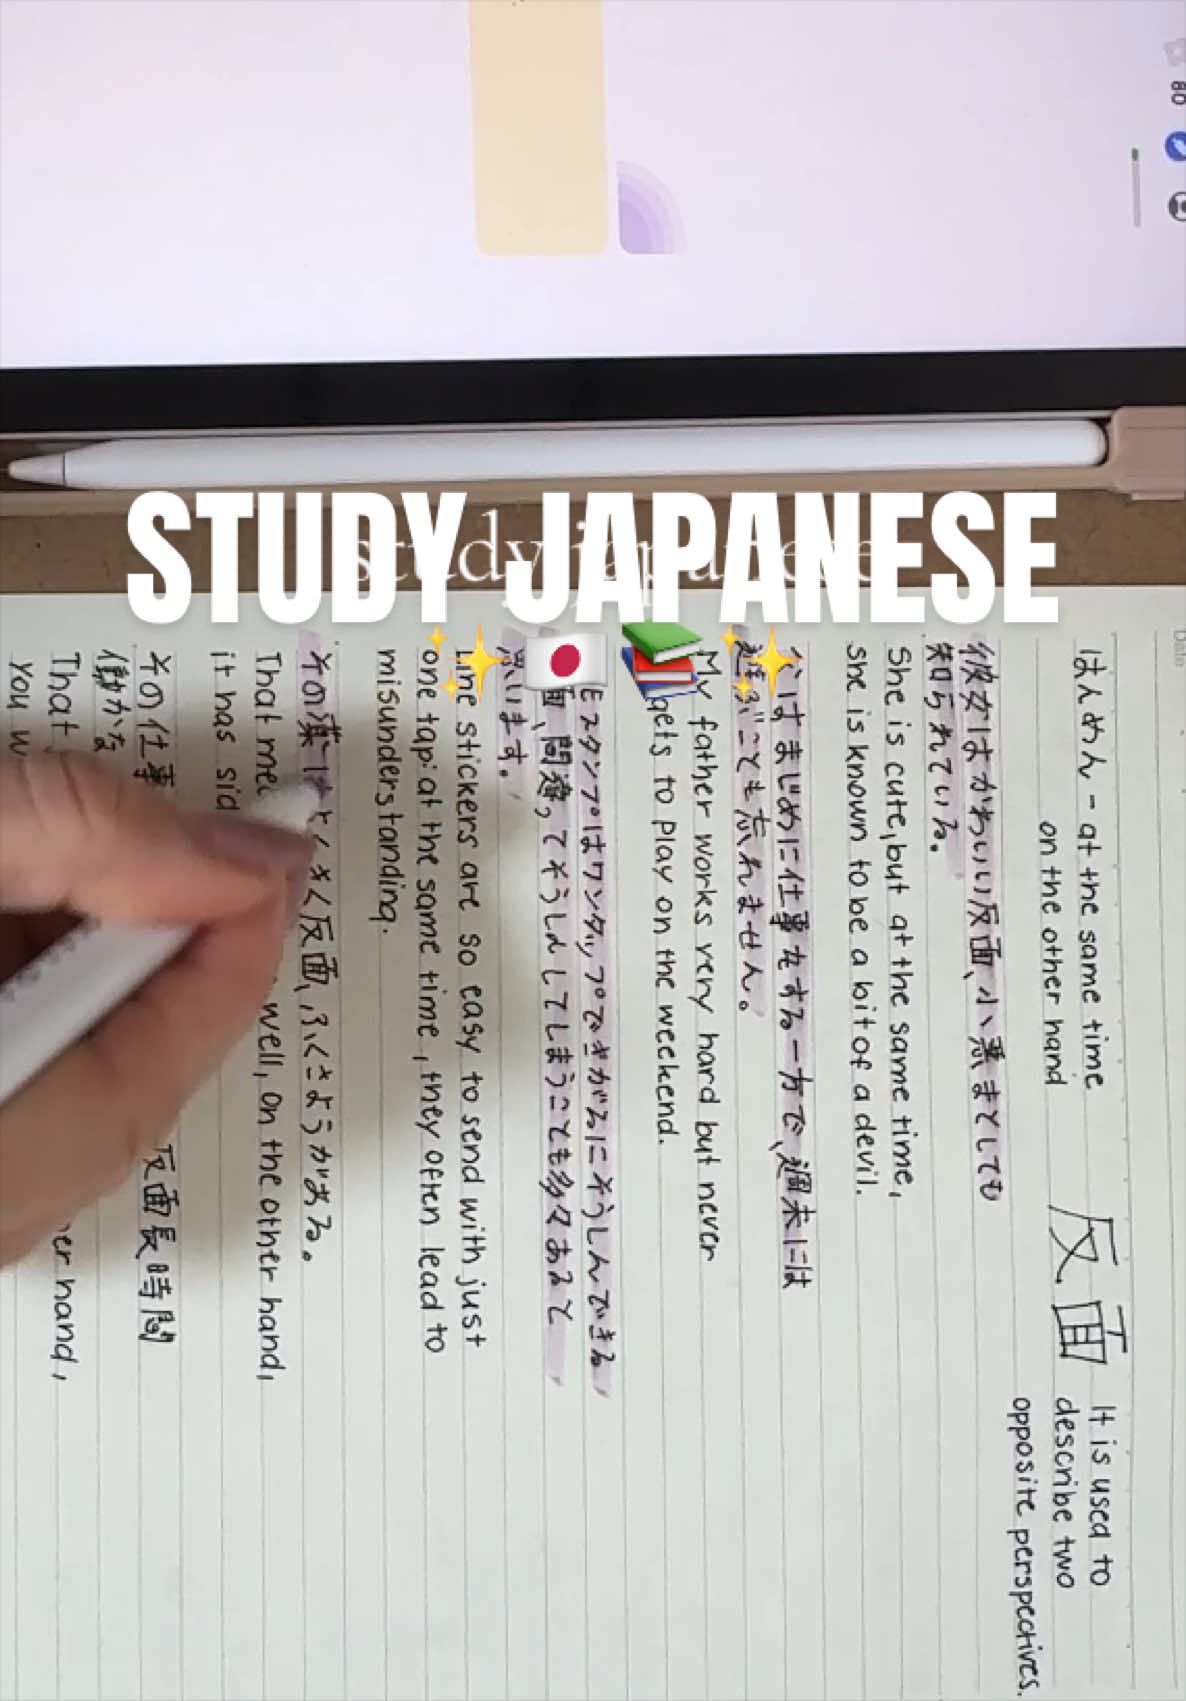 STUDY JAPANESE
study japanese
80
Date
はんめん - at the same time
on the other hand
反面
It is used to
describe two
opposite perspectives.
彼女はかわいい反面、小悪まとしても
知られている。
She is cute, but at the same time,
she is known to be a bit of a devil.
はまじめに仕事をする一方で、週末には
遊ぶことも忘れません。
My father works very hard but never
gets to play on the weekend.
スタンプはワンタップできがるにそうしんできる
面、間違ってそうしんしてしまうことも多々あると
思います。
Line stickers are so easy to send with just
one tap: at the same time, they often lead to
misunderstanding.
その薬は よくきく反面、ふくさようがある。
That med well, on the other hand,
it has sid
その仕事 反面長時間
働かな
That her hand,
you w